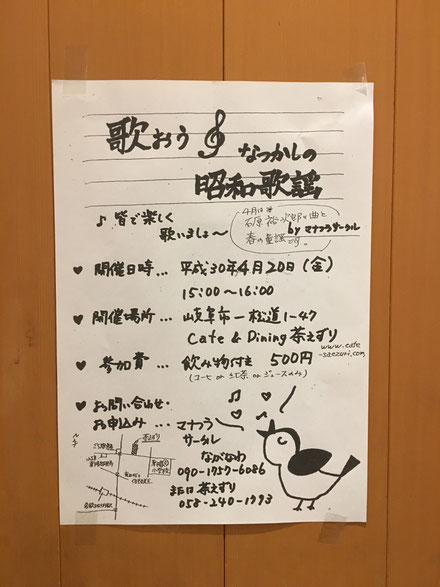 歌おう
なつかしの
昭和歌謡
♪ 皆で楽しく
歌いましょ〜
4月は
石原裕次郎の曲と
春の童謡です。
by マナラサークル
♥ 開催日時… 平成30年4月20日(金)
15:00〜16:00
♥ 開催場所… 岐阜市一松道1-47
Cafe & Dining 茶えずり
www.cafe
-saezuri.com
♥ 参加費 … 飲み物付き 500円
(コーヒー or 紅茶 or ジュースのみ)
♥ お問い合せ・
お申込み… マナラ
サークル
ながなわ
090-1757-6086
または茶えずり
058-240-1993
茶えずり